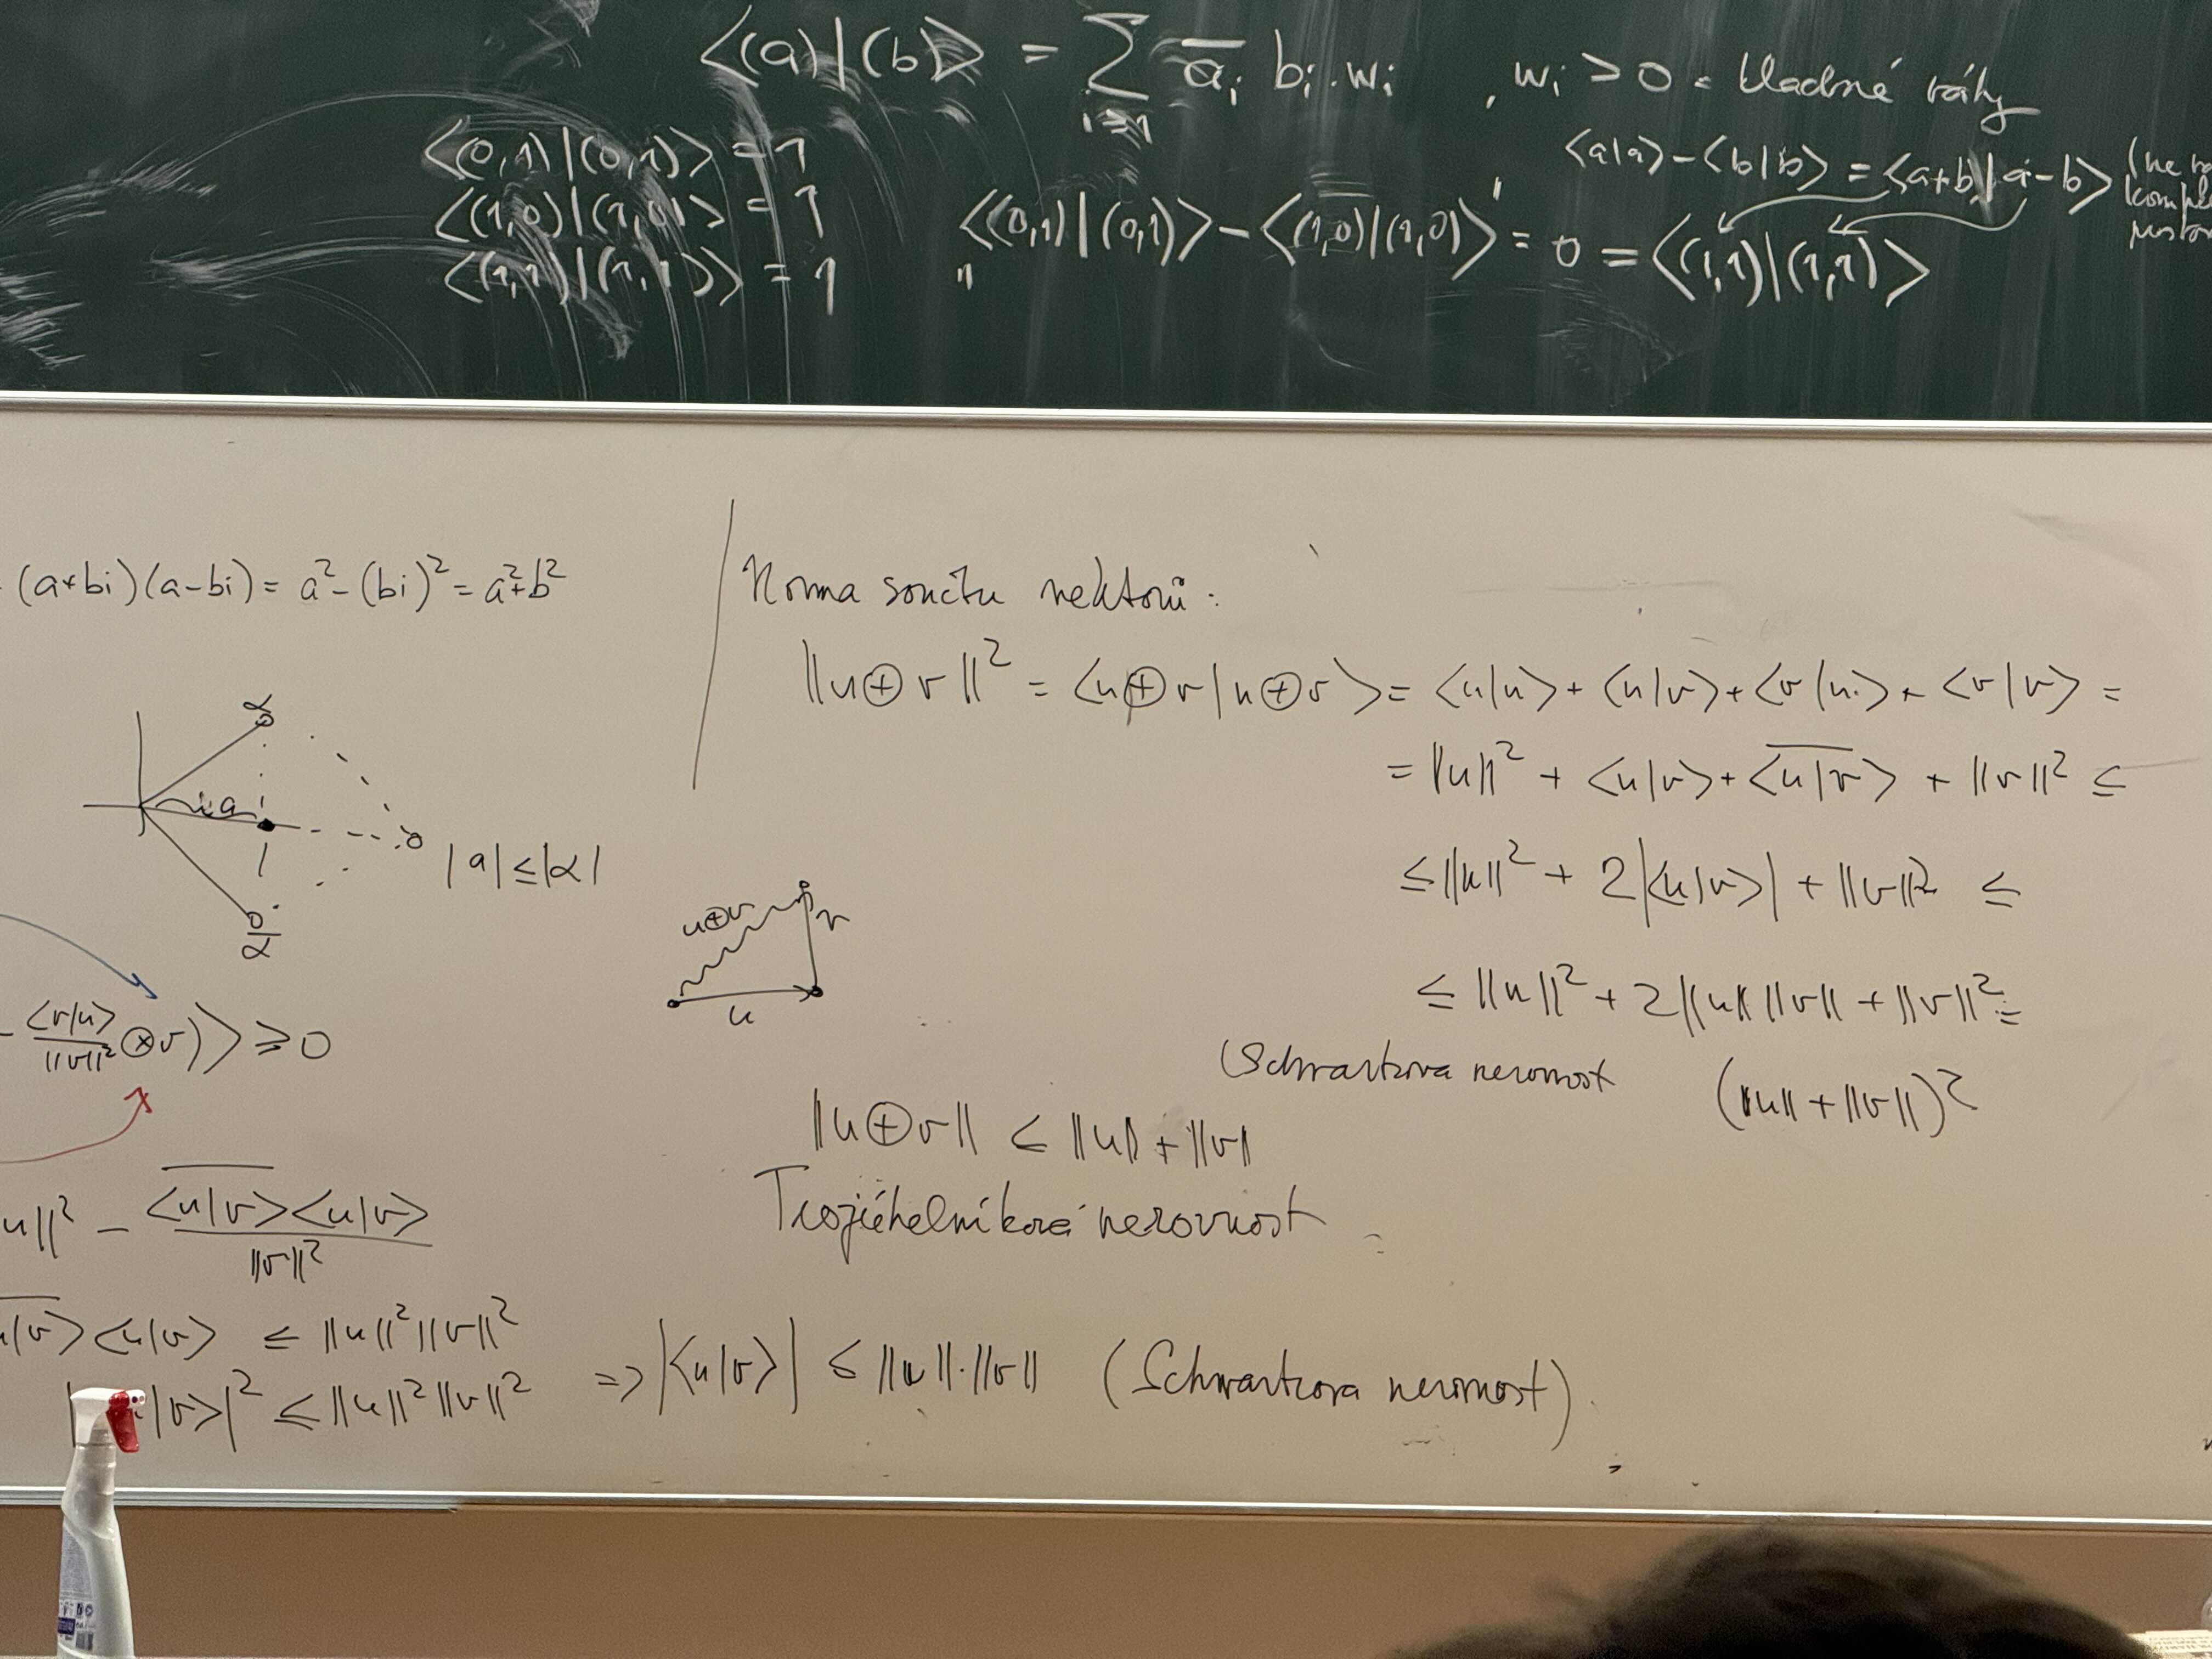 ⟨(a)|(b)⟩ = ∑_{i=1} a̅ᵢ bᵢ·wᵢ , wᵢ > 0 - kladné váhy
⟨(0,1)|(0,1)⟩ = 1
⟨(1,0)|(1,0)⟩ = 1
⟨(1,1)|(1,1)⟩ = 1
⟨a|a⟩ - ⟨b|b⟩ = ⟨a+b|a-b⟩
⟨(0,1)|(0,1)⟩ - ⟨(1,0)|(1,0)⟩ = 0 = ⟨(1,1)|(1,1)⟩
(a+bi)(a-bi) = a² - (bi)² = a²+b²
α
a
|a| ≤ |α|
α̅
⟨v|u⟩/||v||² ⊗ v)⟩ ≥ 0
u||² - \overline{⟨u|v⟩}⟨u|v⟩/||v||²
u|v⟩⟨u|v⟩ ≤ ||u||²||v||²
|v⟩|² ≤ ||u||²||v||² => |⟨u|v⟩| ≤ ||u||·||v|| (Schwartzova nerovnost)
Norma součtu vektorů:
||u⊕v||² = ⟨u⊕v|u⊕v⟩ = ⟨u|u⟩ + ⟨u|v⟩ + ⟨v|u⟩ + ⟨v|v⟩ =
= ||u||² + ⟨u|v⟩ + \overline{⟨u|v⟩} + ||v||² ≤
≤ ||u||² + 2|⟨u|v⟩| + ||v||² ≤
≤ ||u||² + 2||u|| ||v|| + ||v||² =
(Schwartzova nerovnost
(||u|| + ||v||)²
u⊕v
v
u
||u⊕v|| ≤ ||u|| + ||v||
Trojúhelníková nerovnost